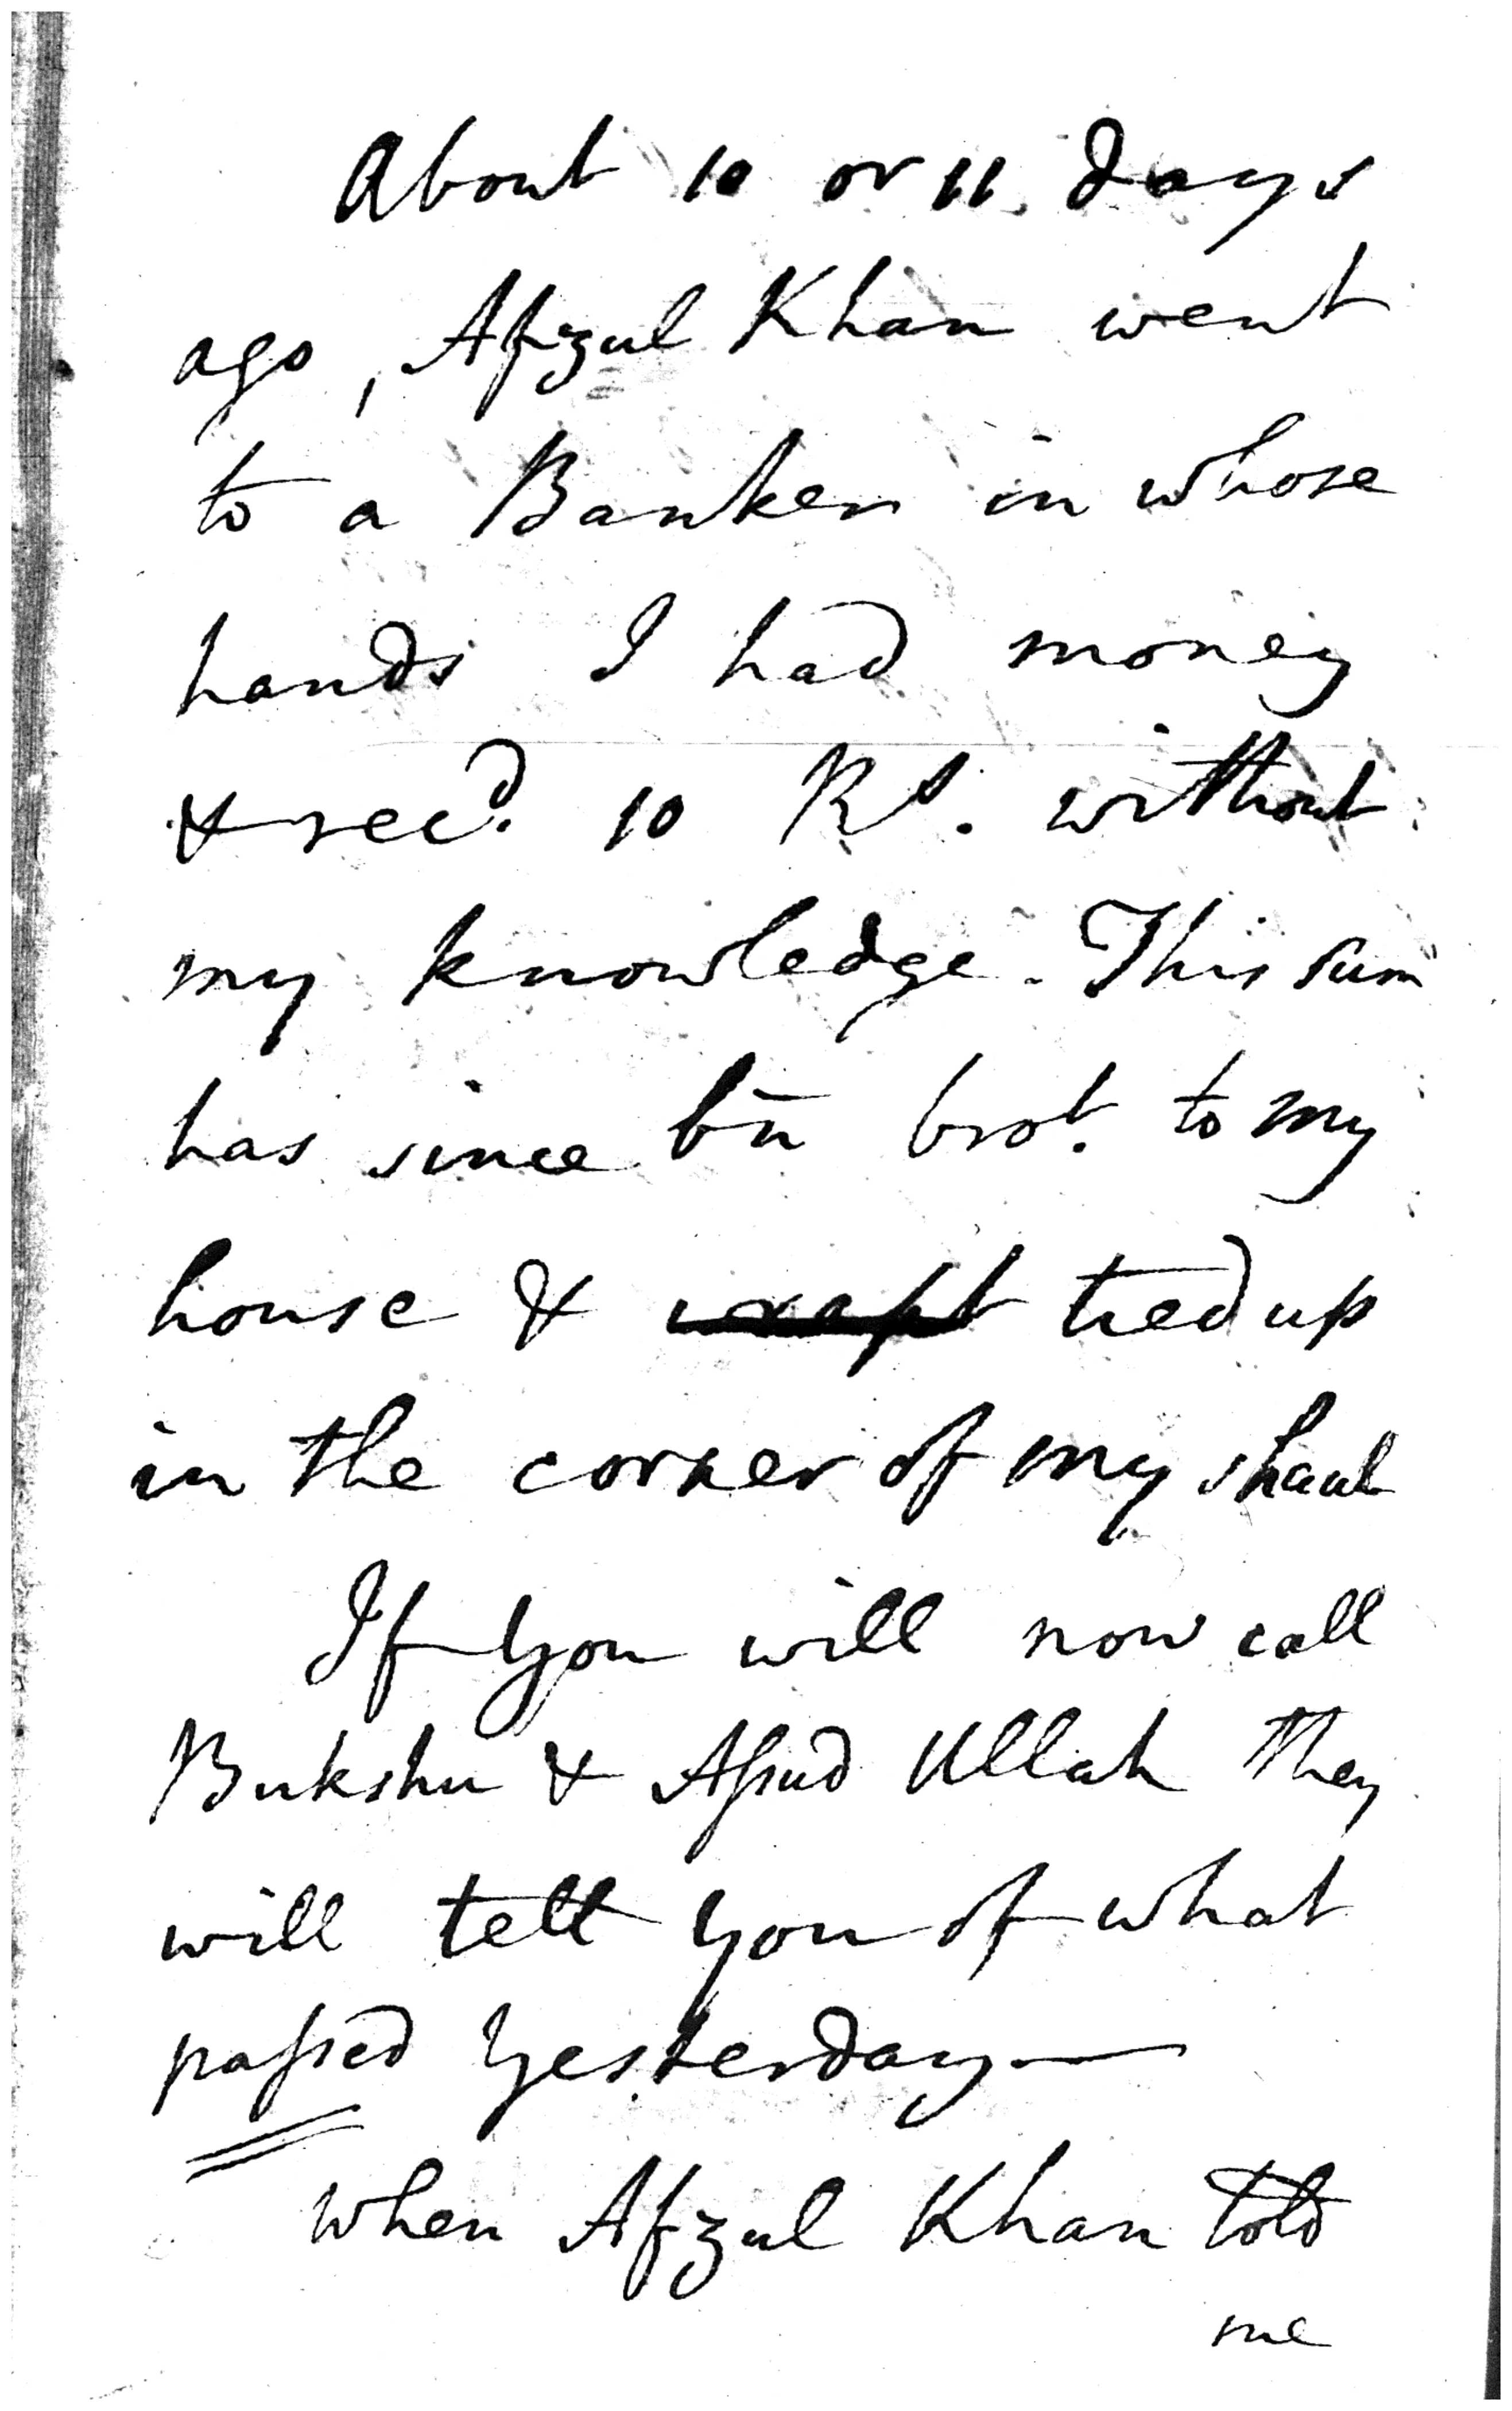 About 10 or 11 days
ago, Afzul Khan went
to a Banker in whose
hands I had money
& recd. 10 Rs. without
my knowledge. This sum
has since bn̄ brot. to my
house & wrapt tied up
in the corner of my shawl
If you will now call
Bukshu & Assud Ullah they
will tell you of what
passed yesterday—
When Afzul Khan told
me